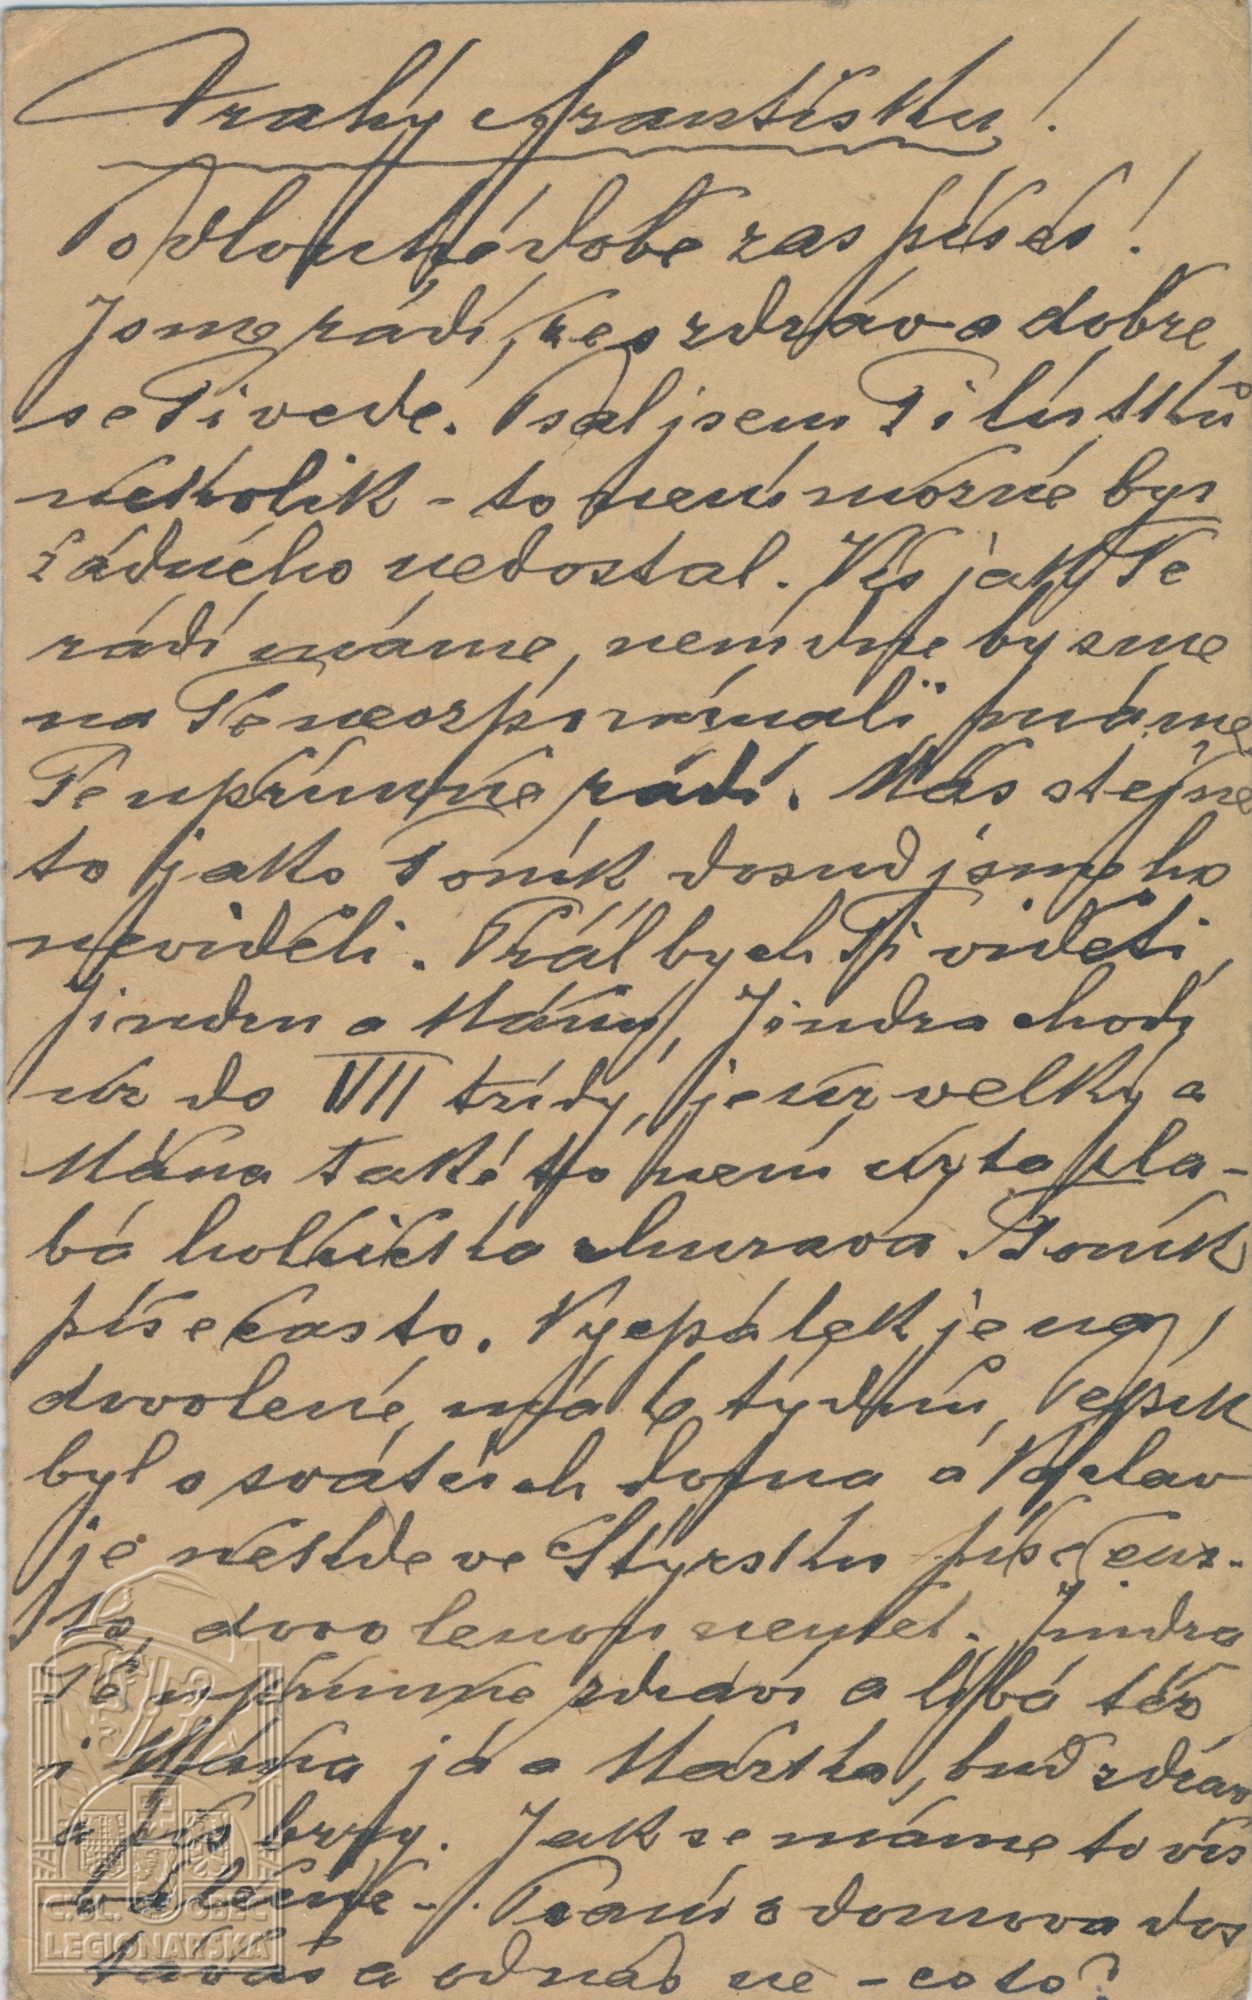 Drahý Františku!
Po dlouhé době zas píšeš!
Jsme rádi, že s zdráv a dobře
se Ti vede. Psal jsem Ti lístků
několik - to není možné bys
žádného nedostal. Víš jak Tě
rádi máme, není dne bysme
na Tě nevzpomínali, máme
Tě upřímně rádi. Máš stejně
to jako Toník dosud jsme ho
neviděli. Přál bych Ti viděti
Jindru a Mánu, Jindra chodí
už do VII třídy, je už velký a
Mána také to není ta sla-
bá holčička churavá. Toník
píše často. Vycpálek je na
dovolené, má 6 týdnů, Pepík
byl o svátcích doma a Václav
je někde ve Štýrsku píše
dovolenou neměl. Jindra
Tě upřímně zdraví a líbá též
i Mána já a Mářka, buď zdráv
a piš brzy. Jak se máme to víš
válečně -. Psaní z domova dos
táváš a od nás ne - co to?
Č.SL. OBEC
LEGIONÁŘSKÁ